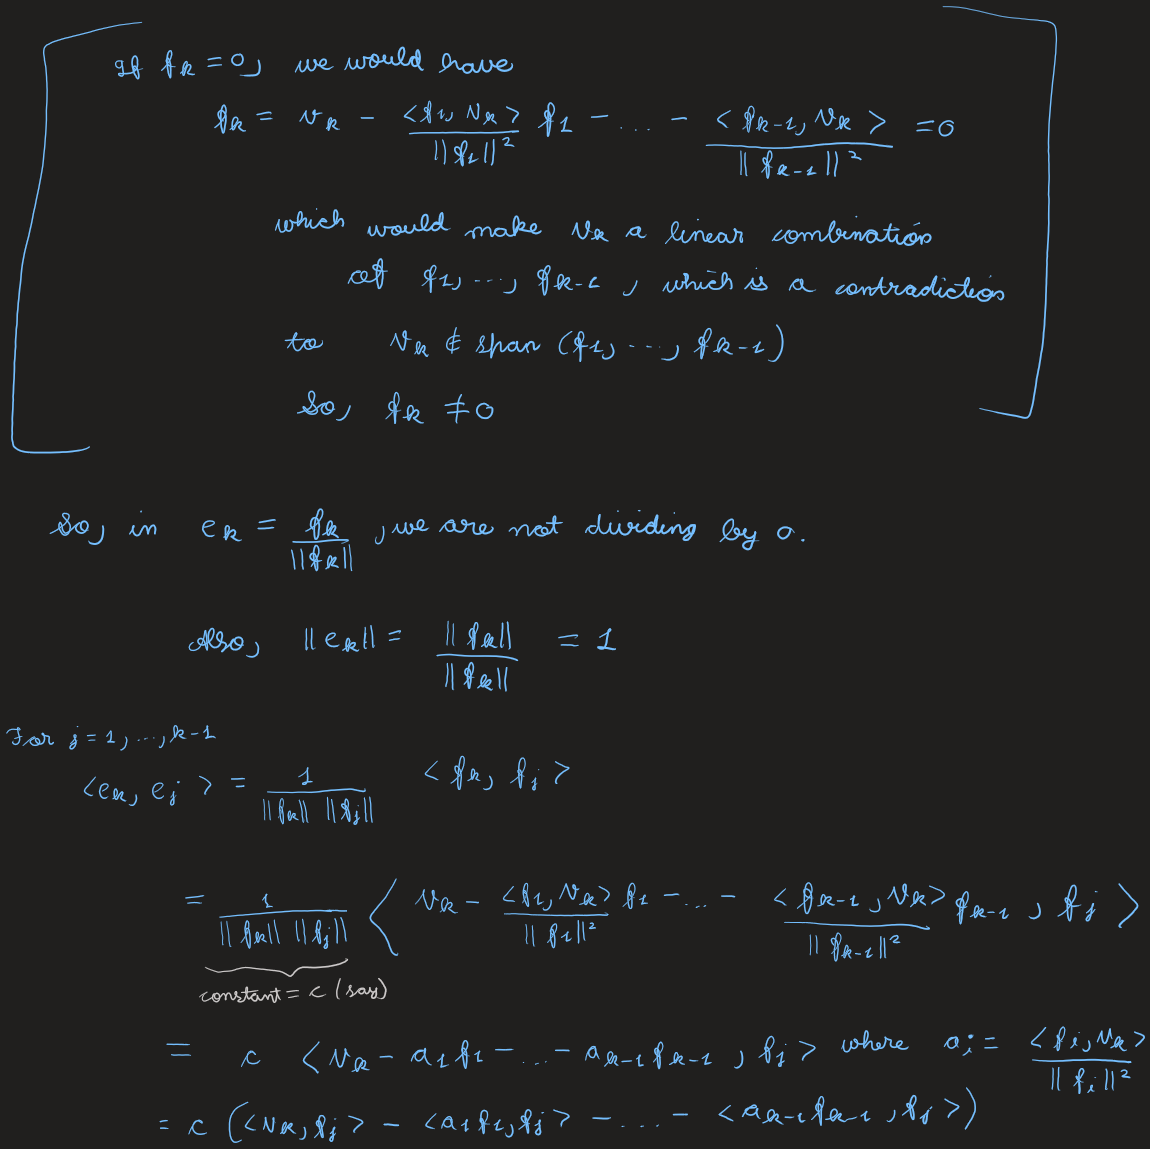 If f_k = 0, we would have
f_k = v_k - <f_1, v_k> / ||f_1||^2 f_1 - ... - <f_{k-1}, v_k> / ||f_{k-1}||^2 = 0
which would make v_k a linear combination
of f_1, ..., f_{k-1}, which is a contradiction
to v_k ∉ span (f_1, ..., f_{k-1})
So, f_k ≠ 0
So, in e_k = f_k / ||f_k||, we are not dividing by 0.
Also, ||e_k|| = ||f_k|| / ||f_k|| = 1
For j = 1, ..., k-1
<e_k, e_j> = 1 / (||f_k|| ||f_j||) <f_k, f_j>
= 1 / (||f_k|| ||f_j||) < v_k - <f_1, v_k> / ||f_1||^2 f_1 - ... - <f_{k-1}, v_k> / ||f_{k-1}||^2 f_{k-1}, f_j >
constant = c (say)
= c <v_k - a_1 f_1 - ... - a_{k-1} f_{k-1}, f_j> where a_i = <f_i, v_k> / ||f_i||^2
= c (<v_k, f_j> - <a_1 f_1, f_j> - ... - <a_{k-1} f_{k-1}, f_j>)